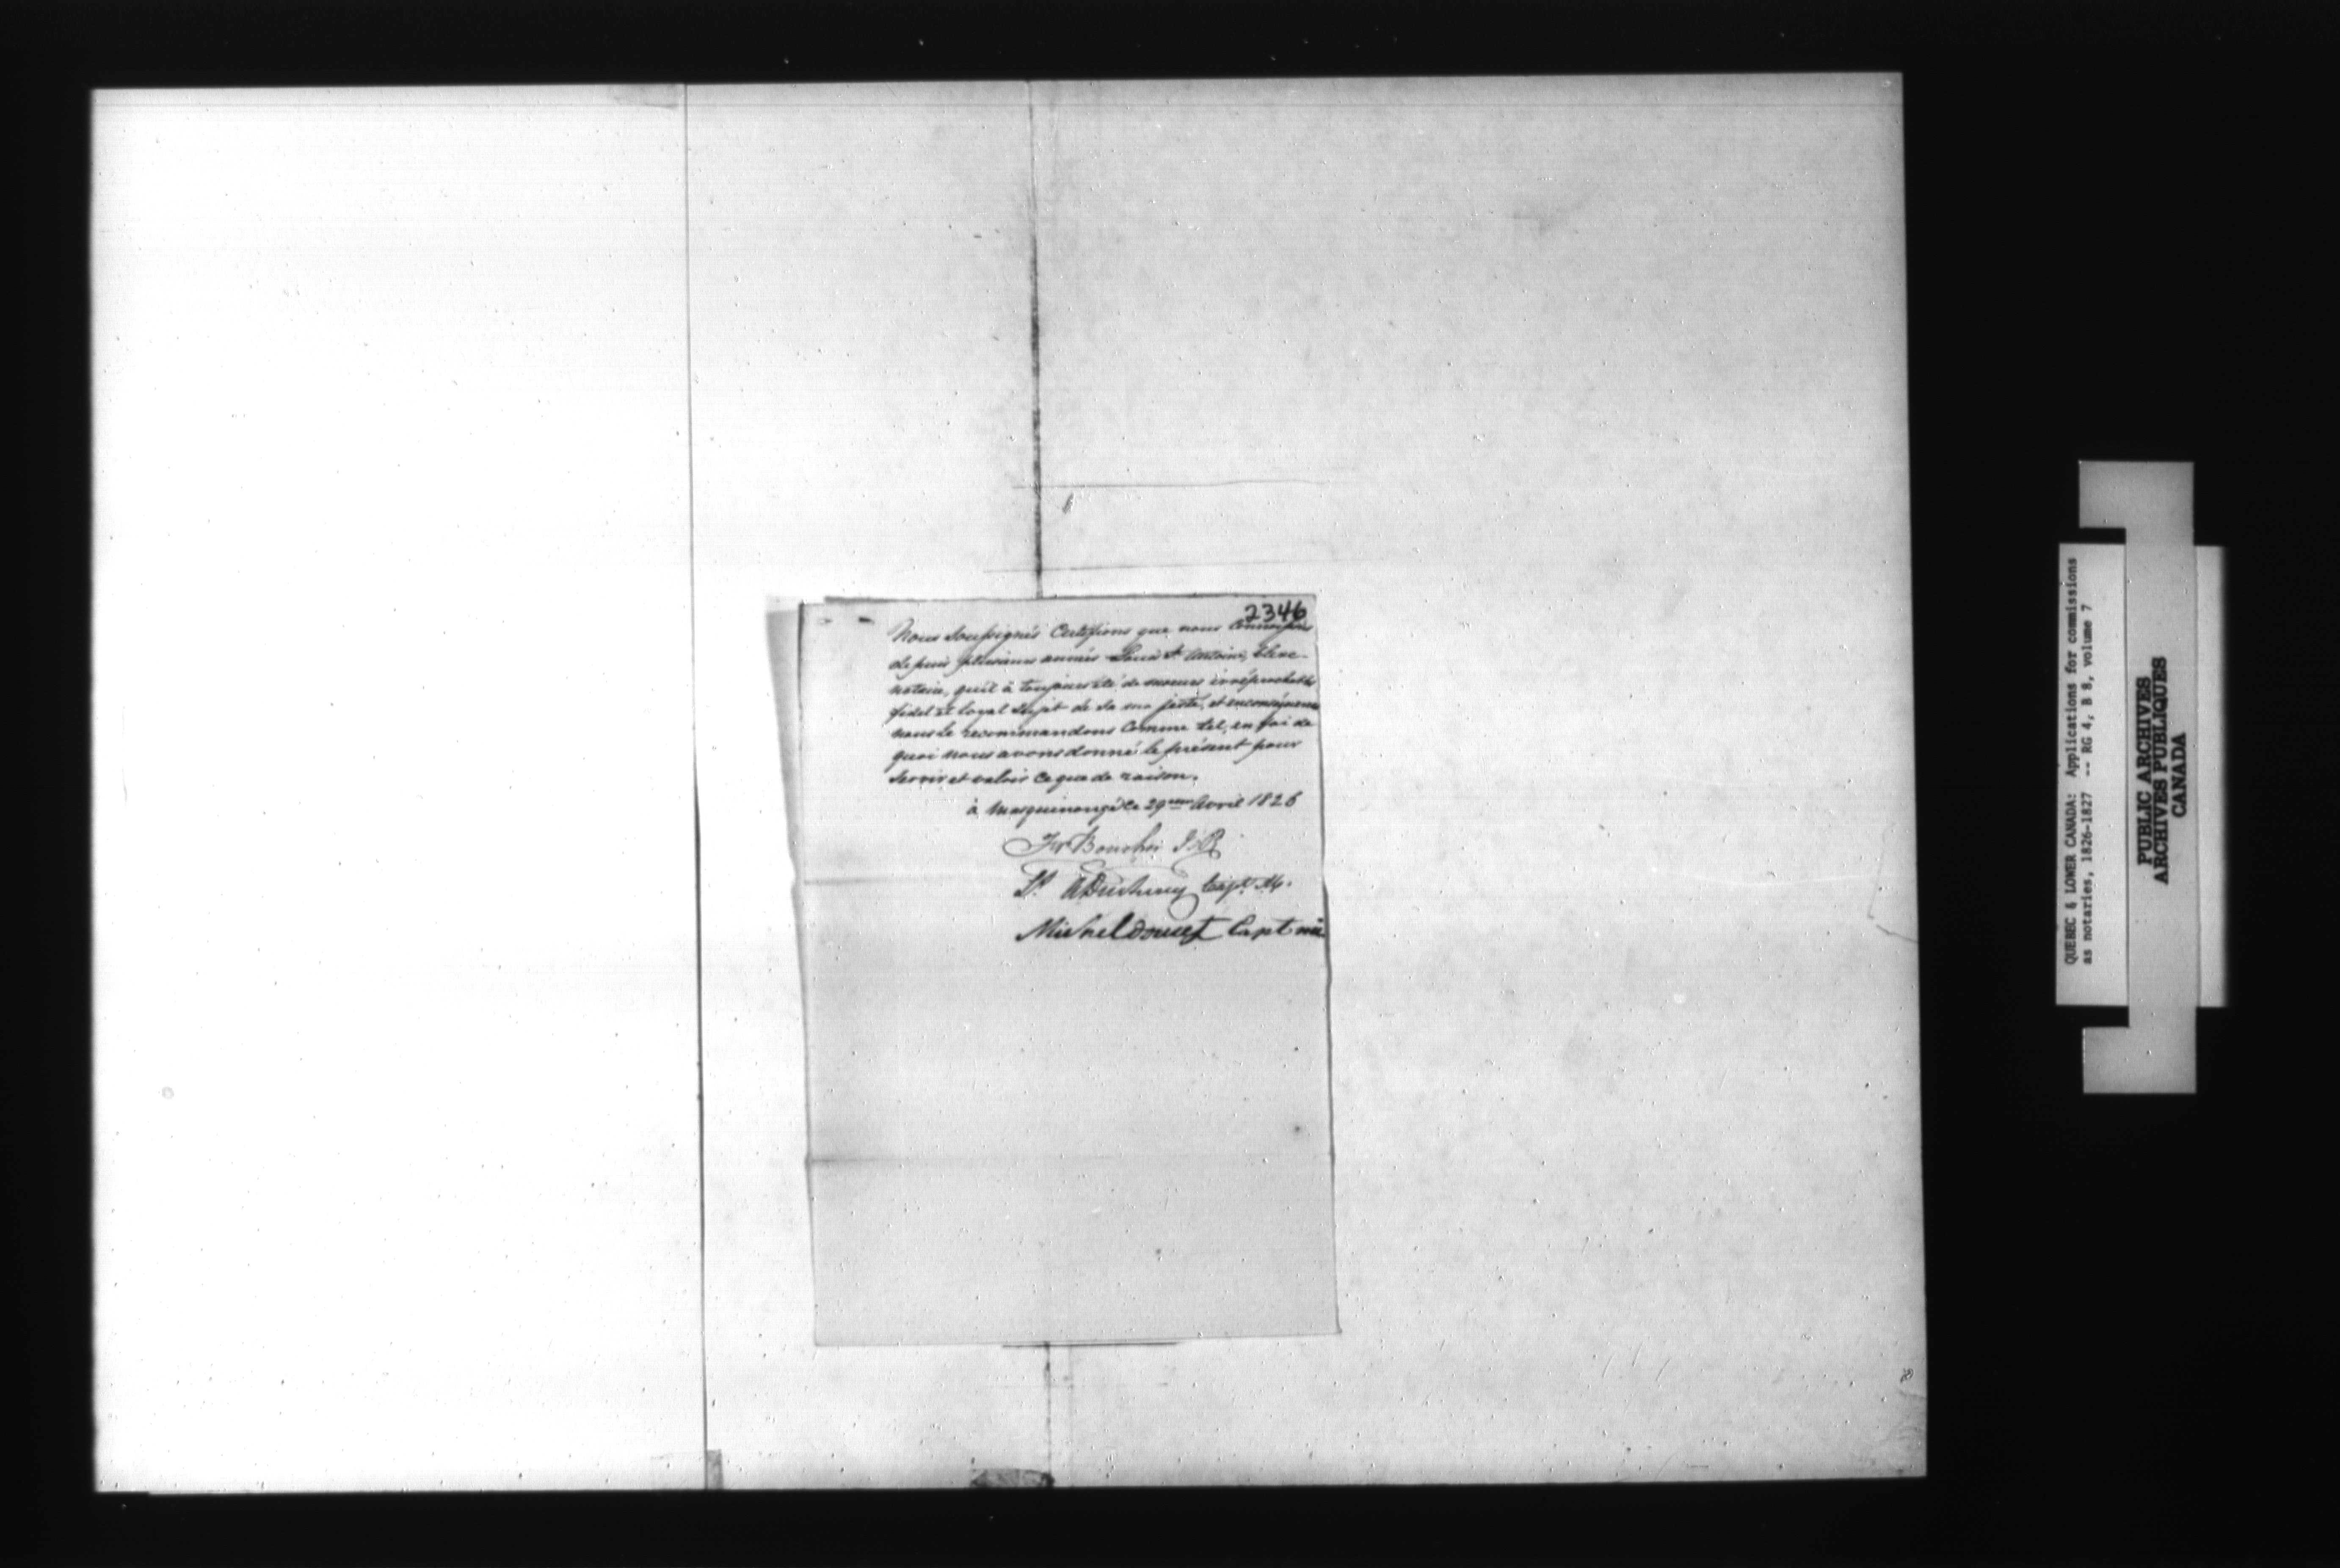 2346
Nous Soussignés Certifions que nous Connoissons
depuis plusieurs années Louis St Antoine, Elève-
notaire, qu'il à toujours été de moeurs irréprochable
fidel et loyal Sujet de Sa ma jesté, et enconséquence
nous le recommandons Comme tel, en foi de
quoi nous avons donné le présent pour
Servir et valoir Ce que de raison.
à Masquinongé le 29eme Avril 1826
Boucher J.P.
Capt. M.
Michel doucet Capt mil
QUEBEC & LOWER CANADA: Applications for commissions
as notaries, 1826-1827 -- RG 4, B 8, volume 7
PUBLIC ARCHIVES
ARCHIVES PUBLIQUES
CANADA